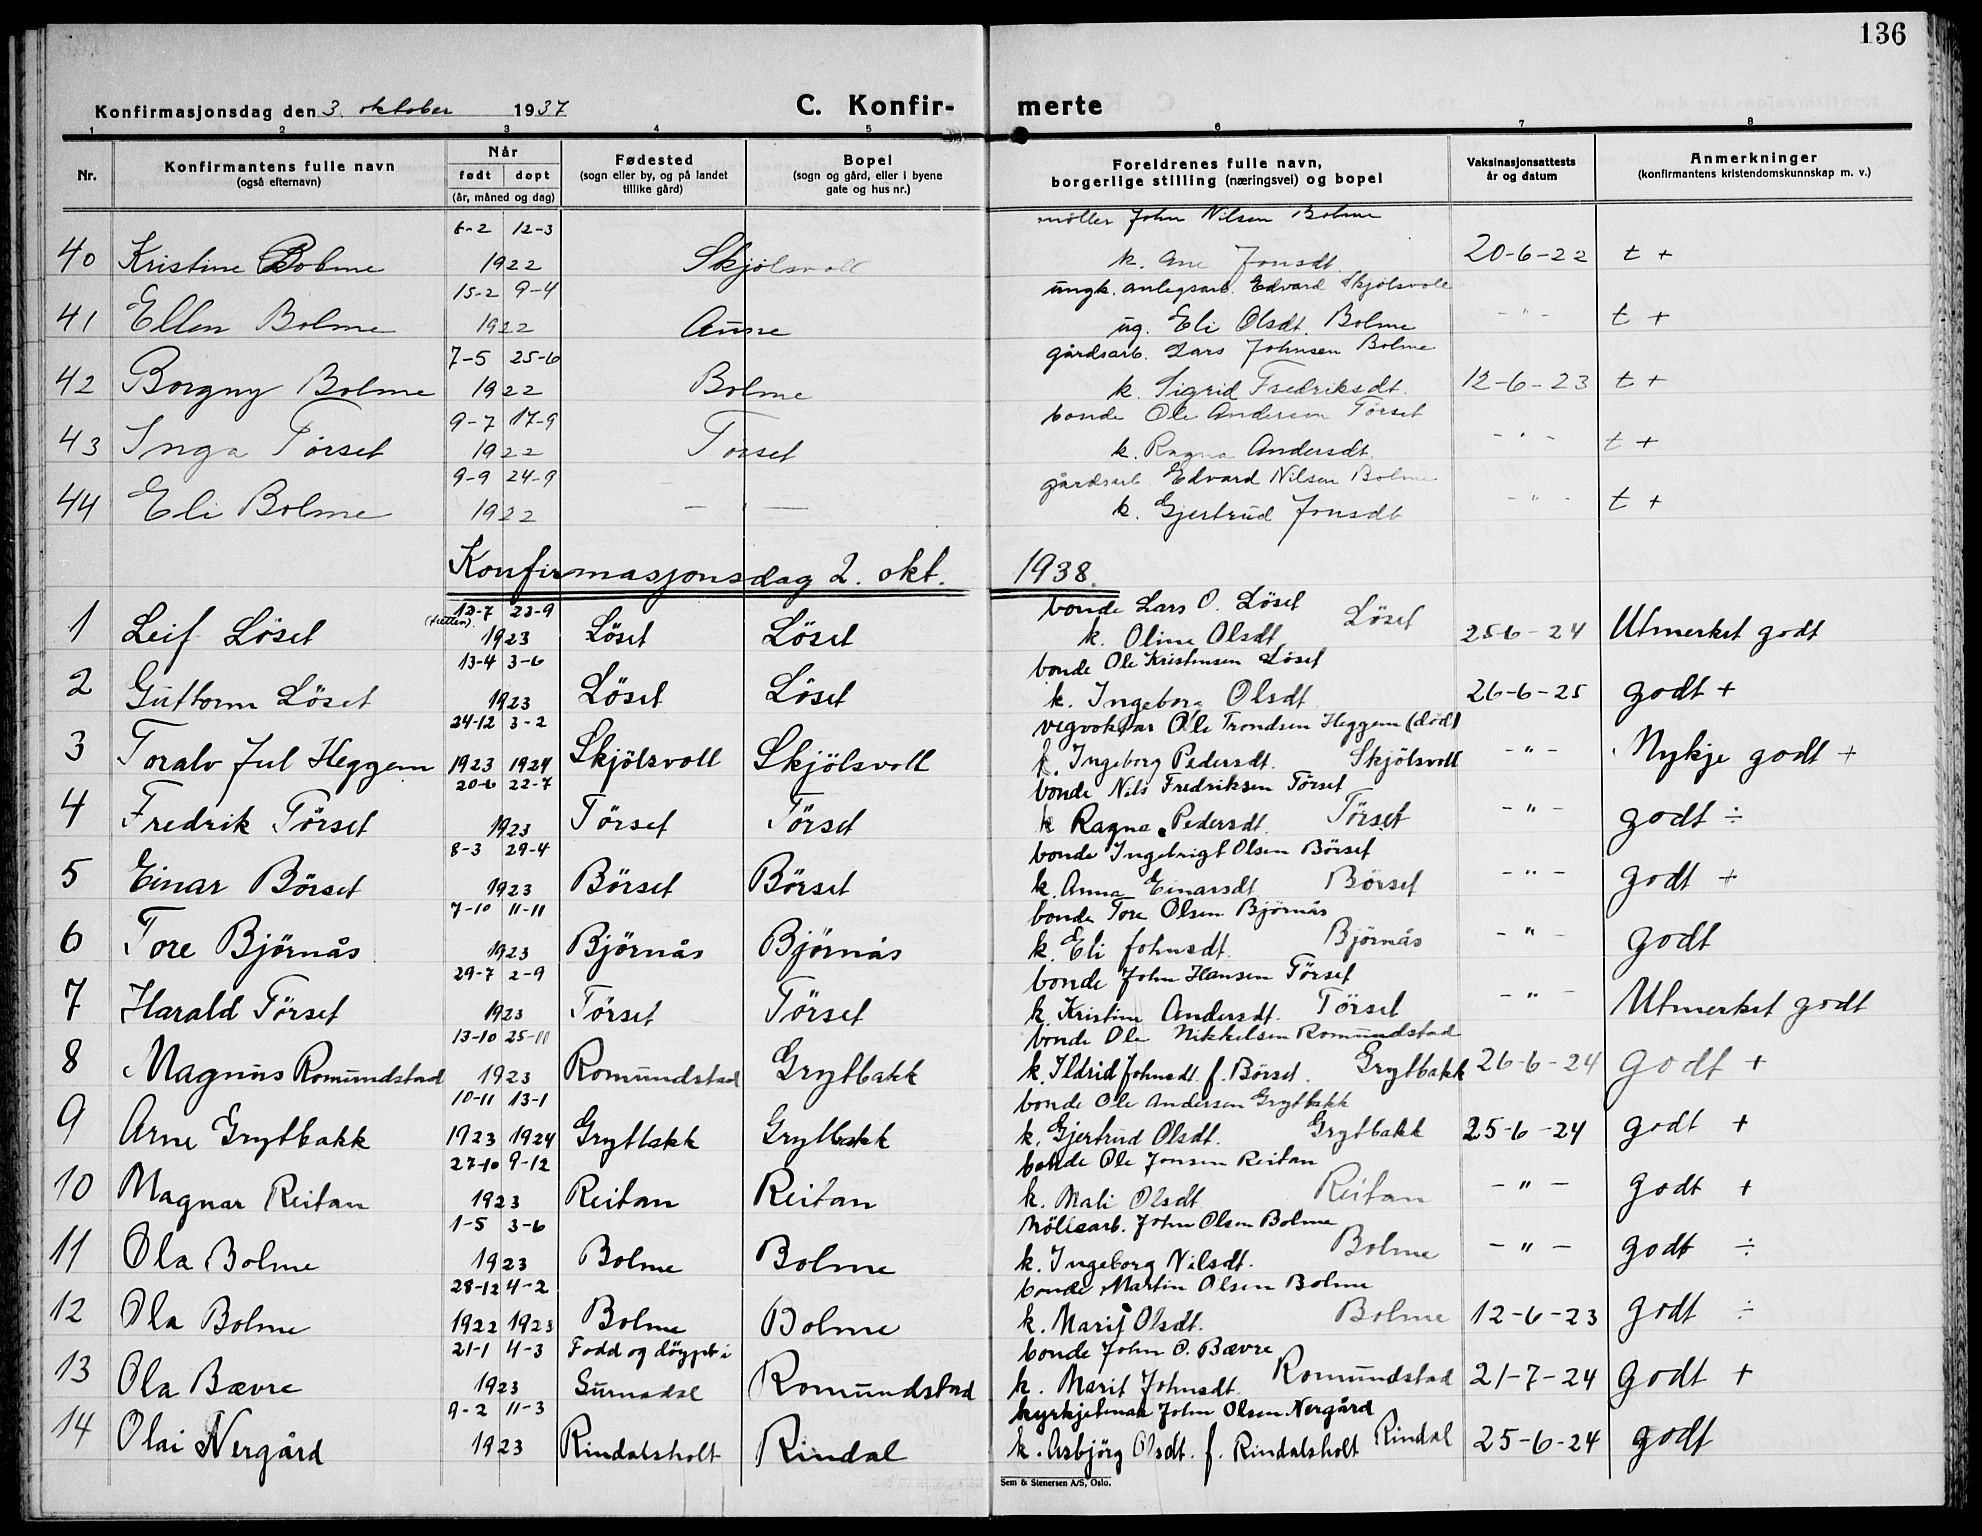 136
Konfirmasjonsdag den 3. oktober 1937 C. Konfir- merte
1 2 3 4 5 6 7 8
Nr. Konfirmantens fulle navn (også efternavn) Når født dopt (år, måned og dag) Fødested (sogn eller by, og på landet tillike gård) Bopel (sogn og gård, eller i byene gate og hus nr.) Foreldrenes fulle navn, borgerlige stilling (næringsvei) og bopel Vaksinasjonsattests år og datum Anmerkninger (konfirmantens kristendomskunnskap m. v.)
6-2 12-3 møller John Nilsen Bolme
40 Kristine Bolme 1922 Skjölsvoll k. Ane Jonsdt. 20-6-22 t +
15-2 9-4 ungk. anlegsarb. Edvard Skjölsvoll
41 Ellen Bolme 1922 Aune ug. Eli Olsdt. Bolme - " - t +
7-5 25-6 gårdsarb. Lars Johnsen Bolme
42 Borgny Bolme 1922 Bolme k. Sigrid Fredriksdt. 12-6-23 t +
9-7 17-9 bonde Ole Andersen Törset
43 Inga Törset 1922 Törset k. Ragna Andersdt. - " - t +
9-9 24-9 gårdsarb. Edvard Nilsen Bolme
44 Eli Bolme 1922 - " - k. Gjertrud Jonsdt - " - t +
Konfirmasjonsdag 2. okt. 1938.
12-7 23-9 bonde Lars O. Löset
1 Leif Löset (tretten). 1923 Löset Löset k. Oline Olsdt Löset 25-6-24 Utmerket godt
13-4 3-6 bonde Ole Kristensen Löset
2 Guttorm Löset 1923 Löset Löset k. Ingeborg Olsdt. 26-6-25 godt +
24-12 3-2 vegvoktar Ole Trondsen Heggem (död)
3 Toralv Jul Heggem 1923 1924 Skjölsvoll Skjölsvoll k. Ingeborg Pedersdt. Skjölsvoll - " - Mykje godt +
20-6 22-7 bonde Nils Fredriksen Törset
4 Fredrik Törset 1923 Törset Törset k Ragna Pedersdt. Törset - " - godt ÷
8-3 29-4 bonde Ingebrigt Olsen Börset
5 Einar Börset 1923 Börset Börset k. Anna Einarsdt. Börset - " - godt +
7-10 11-11 bonde Tore Olsen Björnås
6 Tore Björnås 1923 Björnås Björnås k. Eli Johnsdt. Björnås - " - godt
29-7 2-9 bonde John Hansen Törset
7 Harald Törset 1923 Törset Törset k. Kristine Andersdt. Törset - " - Utmerket godt
13-10 25-11 bonde Ole Mikkelsen Romundstad
8 Magnus Romundstad 1923 Romundstad Grytbakk k. Ildrid Johnsdt. f. Börset. Grytbakk 26-6-24 godt +
10-11 13-1 bonde Ole Andersen Grytbakk
9 Arne Grytbakk 1923 1924 Grytbakk Grytbakk k. Gjertrud Olsdt. Grytbakk 25-6-24 godt +
27-10 9-12 bonde Ole Jonsen Reitan
10 Magnar Reitan 1923 Reitan Reitan k. Mali Olsdt Reitan - " - godt +
1-5 3-6 Möllearb. John Olsen Bolme
11 Ola Bolme 1923 Bolme Bolme k. Ingeborg Nilsdt. Bolme - " - godt ÷
28-12 4-2 bonde Martin Olsen Bolme
12 Ola Bolme 1922 1923 Bolme Bolme k. Marit Olsdt. Bolme 12-6-23 godt ÷
21-1 4-3 Fodd og döypt i bonde John O. Bævre
13 Ola Bævre 1923 Surnadal Romundstad k. Marit Johnsdt. Romundstad 21-7-24 godt +
9-2 11-3 kyrkjetenar John Olsen Nergård
14 Olai Nergård 1923 Rindalsholt Rindal k. Asbjörg Olsdt. f. Rindalsholt Rindal 25-6-24 godt
Sem & Stenersen A/S, Oslo.